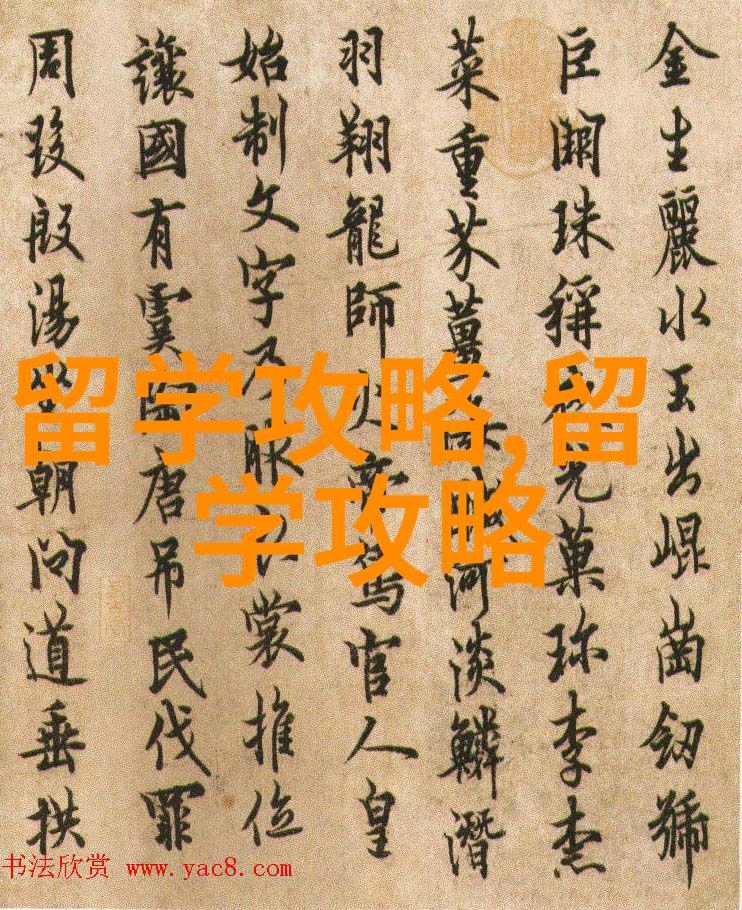 金生麗水玉出崐崗劒號
巨闕珠稱夜光菓珎李柰
菜重芥薑河淡鱗潛
羽翔龍師火帝鳥官人皇
始制文字乃服衣裳推位
讓國有虞陶唐吊民伐罪
周發殷湯坐朝問道垂拱
留学攻略,留
学攻略
书法欣赏 www.yac8.com